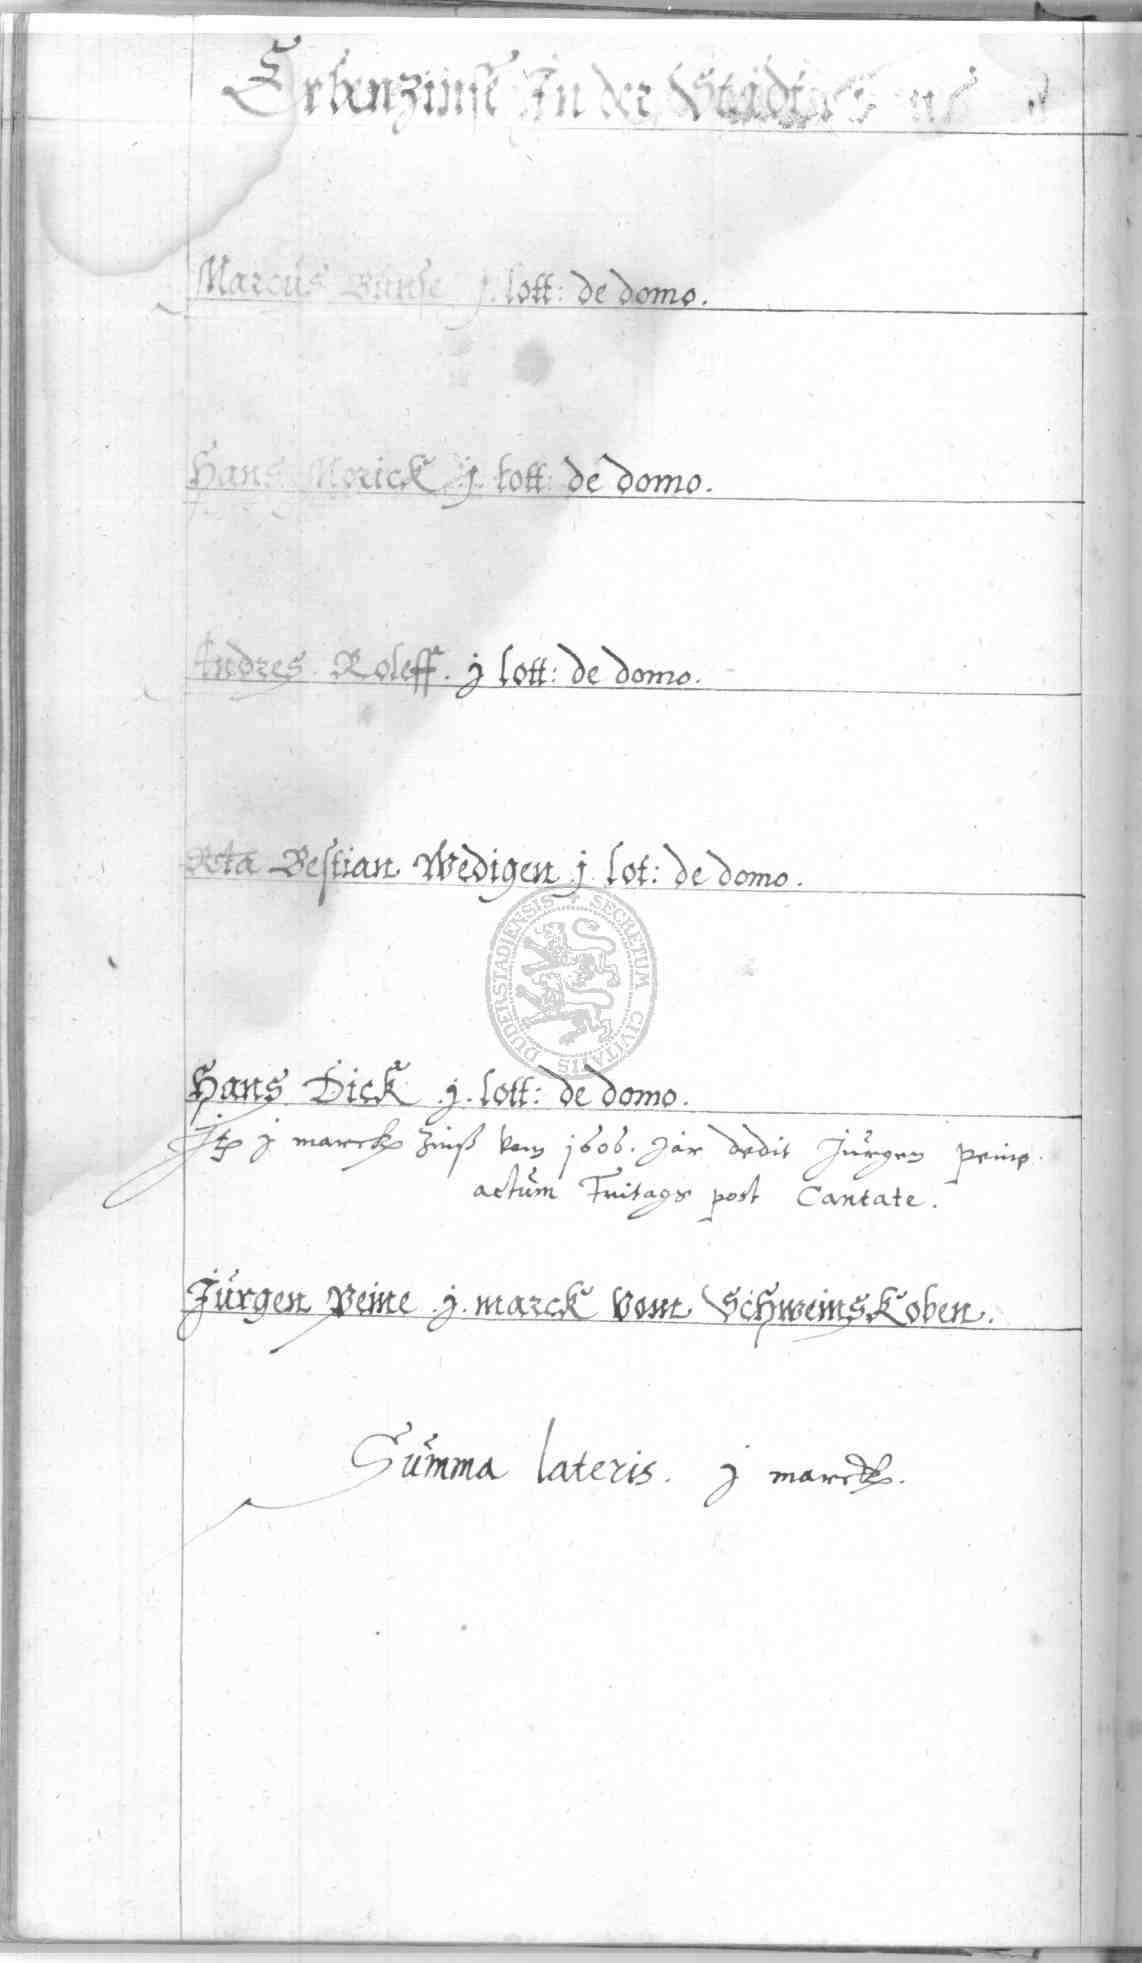 Erbenzinse In der Stadt
Marcus j. lott: de domo.
Hans Morick j. lott: de domo.
Andres Roleff. j lott: de domo.
Rta Bestian Wedigen j lot: de domo.
SECRETUM CIVITATIS DUDERSTADIENSIS
Hans Dick .j. lott: de domo.
j marck zinß vom 1606. Jar dedit Jürgen Peine.
actum Freitags post Cantate.
Jürgen Peine .j. marck vom Schweinskoben.
Summa lateris. j marck.